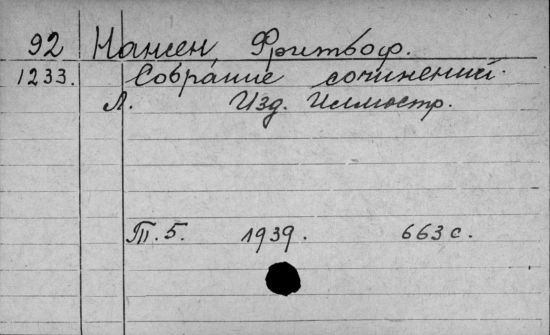 92 Нансен Фритьоф.
1233. Собрание сочинений.
Л. Изд. Иллюстр.
Т. 5. 1939. 663 с.